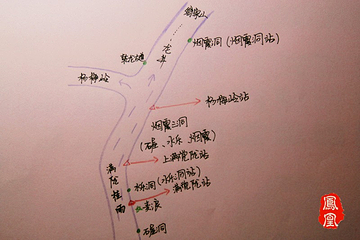 烟霞洞（烟霞洞站）
龙井
杨梅岭
杨梅岭站
烟霞三洞
（石屋、水乐、烟霞）
上满觉陇站
满陇桂雨
水乐洞（水乐洞站）
满觉陇站
石屋洞
鳳凰